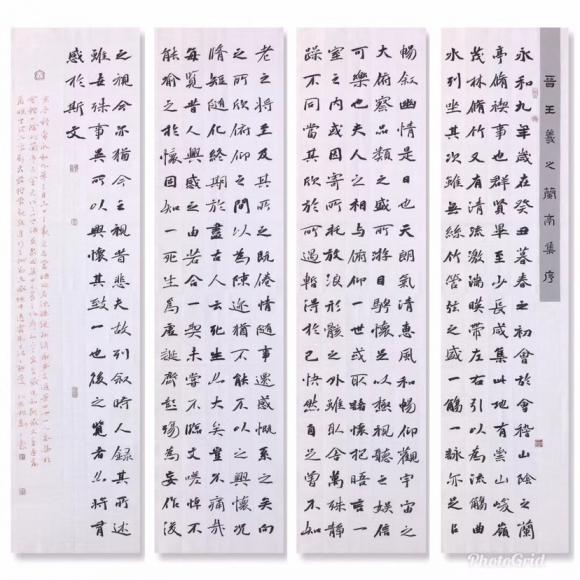 晉王羲之蘭亭集序
永和九年歲在癸丑暮春之初會於會稽山陰之蘭
亭脩禊事也群賢畢至少長咸集此地有崇山峻嶺
茂林脩竹又有清流激湍暎帶左右引以為流觴曲
水列坐其次雖無絲竹管弦之盛一觴一詠亦足以
暢敘幽情是日也天朗氣清惠風和暢仰觀宇宙之
大俯察品類之盛所以遊目騁懷足以極視聽之娛信
可樂也夫人之相與俯仰一世或取諸懷抱悟言一
室之內或因寄所託放浪形骸之外雖趣舍萬殊靜
躁不同當其欣於所遇暫得於己快然自足曾不知
老之將至及其所之既倦情隨事遷感慨系之矣向
之所欣俯仰之間以為陳迹猶不能不以之興懷況
脩短隨化終期於盡古人云死生亦大矣豈不痛哉
每覽昔人興感之由若合一契未嘗不臨文嗟悼不
能喻之於懷固知一死生為虛誕齊彭殤為妄作後
之視今亦猶今之視昔悲夫故列敘時人錄其所述
雖世殊事異所以興懷其致一也後之覽者亦將有
感於斯文
PhotoGrid